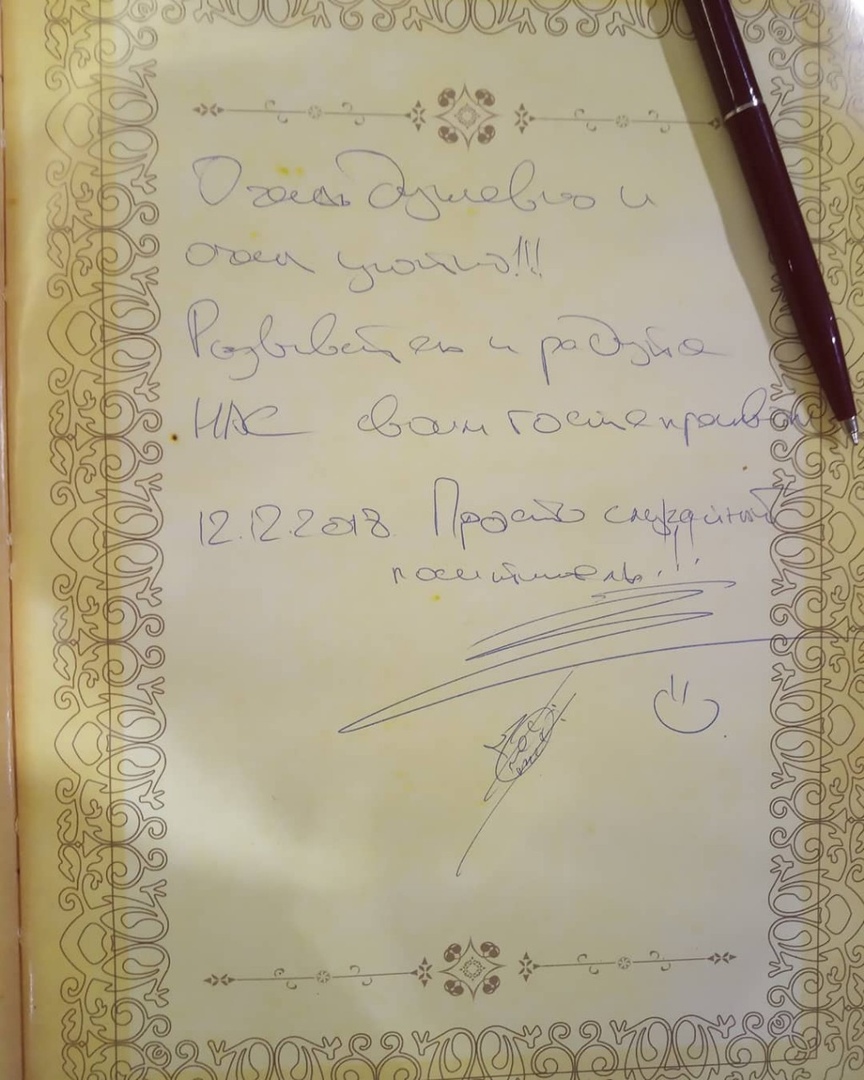 Очень душевно и
очень уютно!!!
Развивайтесь и радуйте
НАС своим гостеприимством
12.12.2018 Просто случайный
посетитель!!!